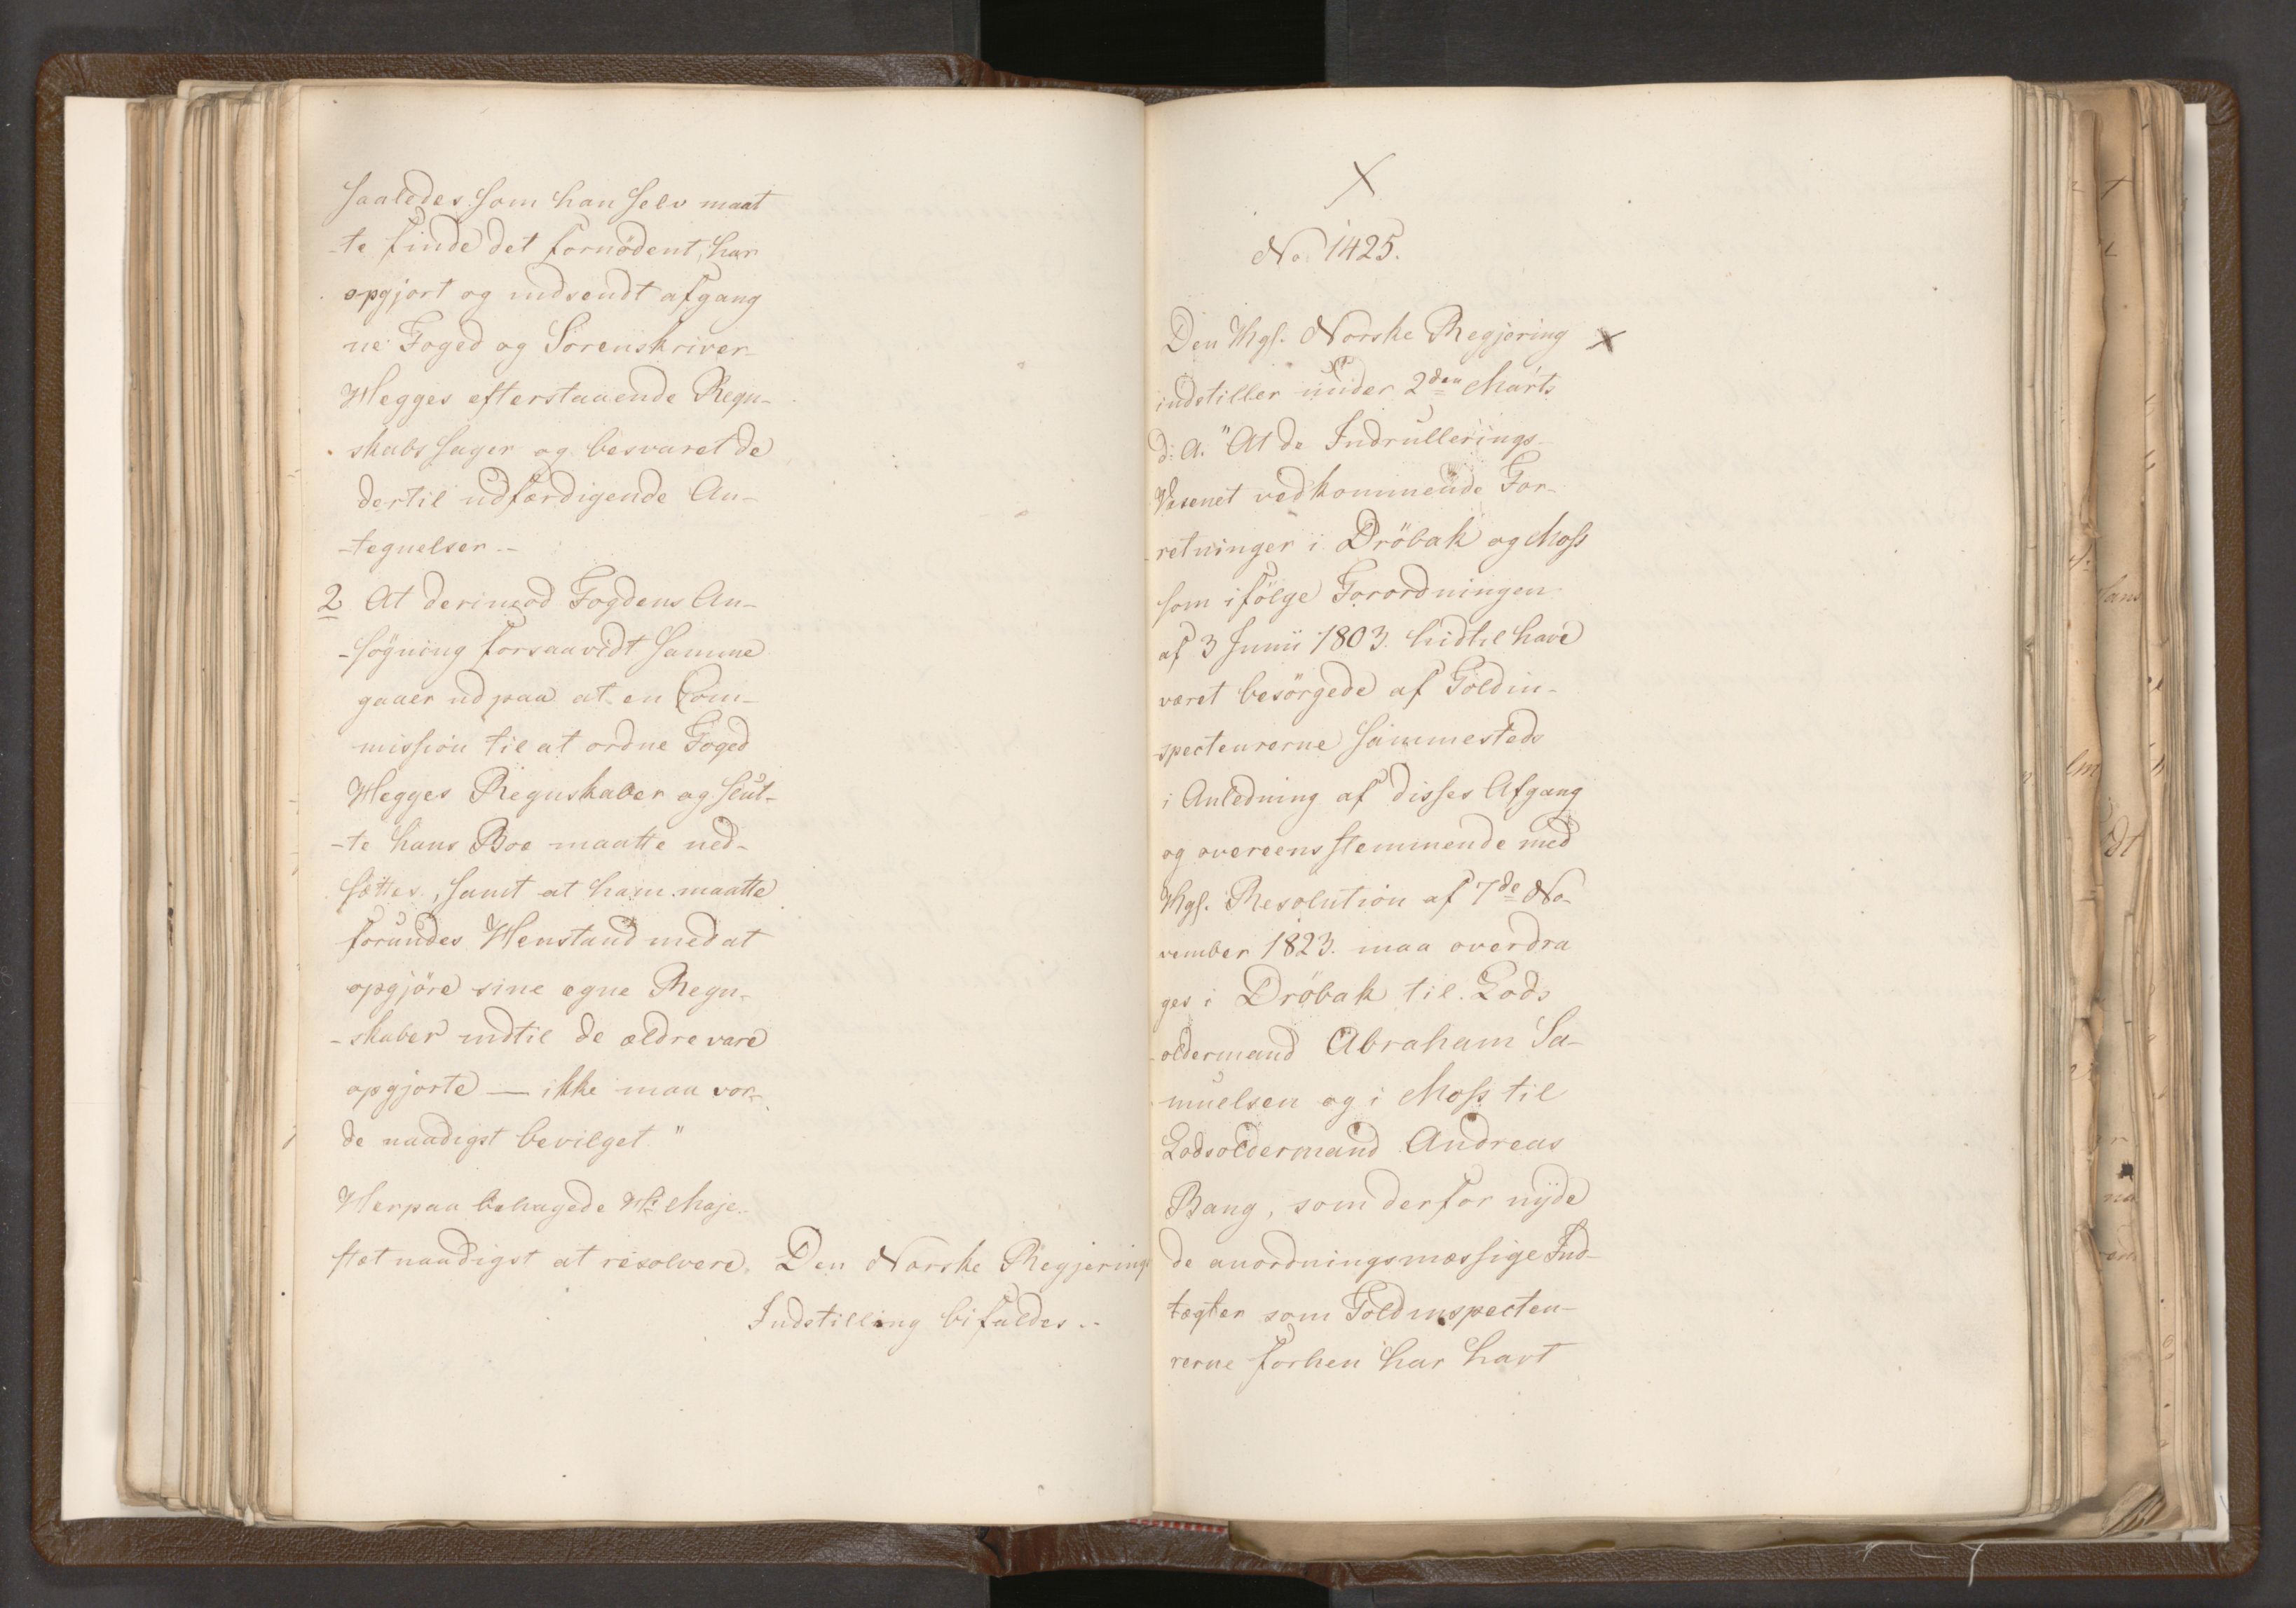 saaledes som han selv maat
-te finde det fornödent, har
opgjort og indsendt afgang
ne Foged og Sorenskriver
Hegges efterstaaende Regn-
skabssager og besvaret de
dertil udfærdigende An-
-tegnelser.-
2 At derimod Fogdens An-
-søgning forsaavidt samme
gaaer ud paa at en Com-
mission til at ordne Foged
Hegges Regnskaber og slut-
-te hans Boe maatte ned-
sættes, samt at ham maatte
forundes Henstand med at
opgjöre sine egne Regn-
-skaber indtil de ældre vare
opgjorte — ikke maa vor-
de naadigst bevilget"
Herpaa behagede Hs Maje-
stet naadigst at resolvere. Den Norske Regjerings
Indstilling bifaldes.-
X
No 1425.
Den Kgl. Norske Regjering X
indstiller under 2den Marts
d: A. "At de Indrullerings-
Væsenet vedkommende For-
-retninger i Dröbak og Moss
som ifölge Forordningen
af 3 Junii 1803. hidtil have
været besörgede af Toldin-
-specteurerne sammesteds
i Anledning af disses Afgang
og overeensstemmende med
Kgl. Resolution af 7de No-
vember 1823. maa overdra
ges i Dröbak til Lods
-oldermand Abraham Sa-
muelsen og i Moss til
Lodsoldermand Andreas
Bang, som derfor nyde
de anordningsmæssige Ind-
tægter som Toldinspecteu-
rerne forhen har havt